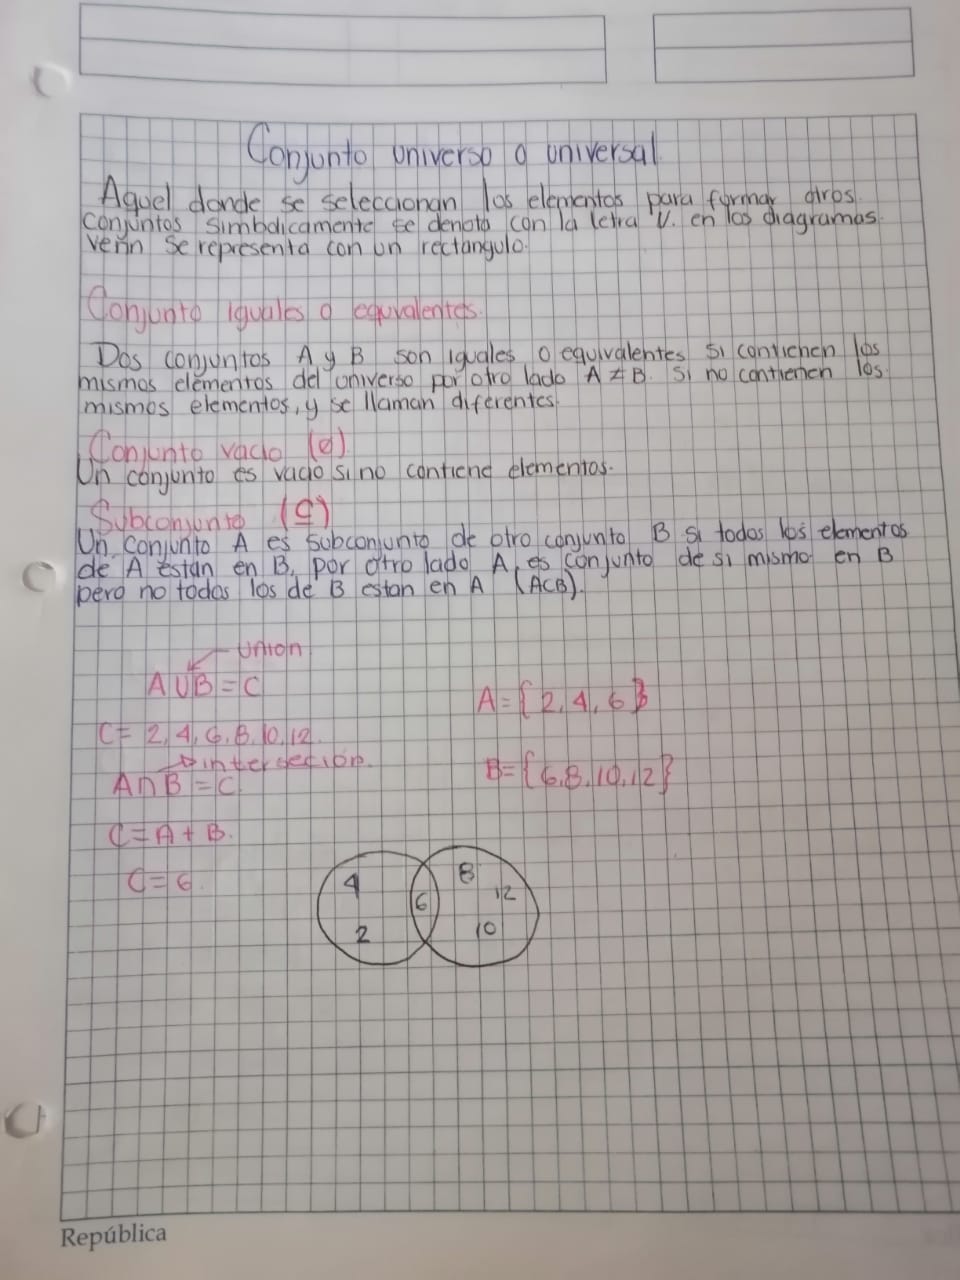 Conjunto universo o universal
Aquel donde se seleccionan los elementos para formar otros
conjuntos simbolicamente se denota con la letra U. en los diagramas
venn se representa con un rectangulo.
Conjunto iguales o equivalentes.
Dos conjuntos A y B son iguales o equivalentes si contienen los
mismos elementos del universo por otro lado A ≠ B. Si no contienen los
mismos elementos, y se llaman diferentes.
Conjunto vacio (∅)
Un conjunto es vacio si no contiene elementos.
Subconjunto (⊆)
Un conjunto A es subconjunto de otro conjunto B si todos los elementos
de A estan en B, por otro lado A es conjunto de si mismo en B
pero no todos los de B estan en A (A⊂B).
Union
A∪B = C
A = {2, 4, 6}
C = 2, 4, 6, 8, 10, 12.
intersecion.
B = {6, 8, 10, 12}
A∩B = C.
C = A + B.
C = 6.
4 8
6 12
2 10
República